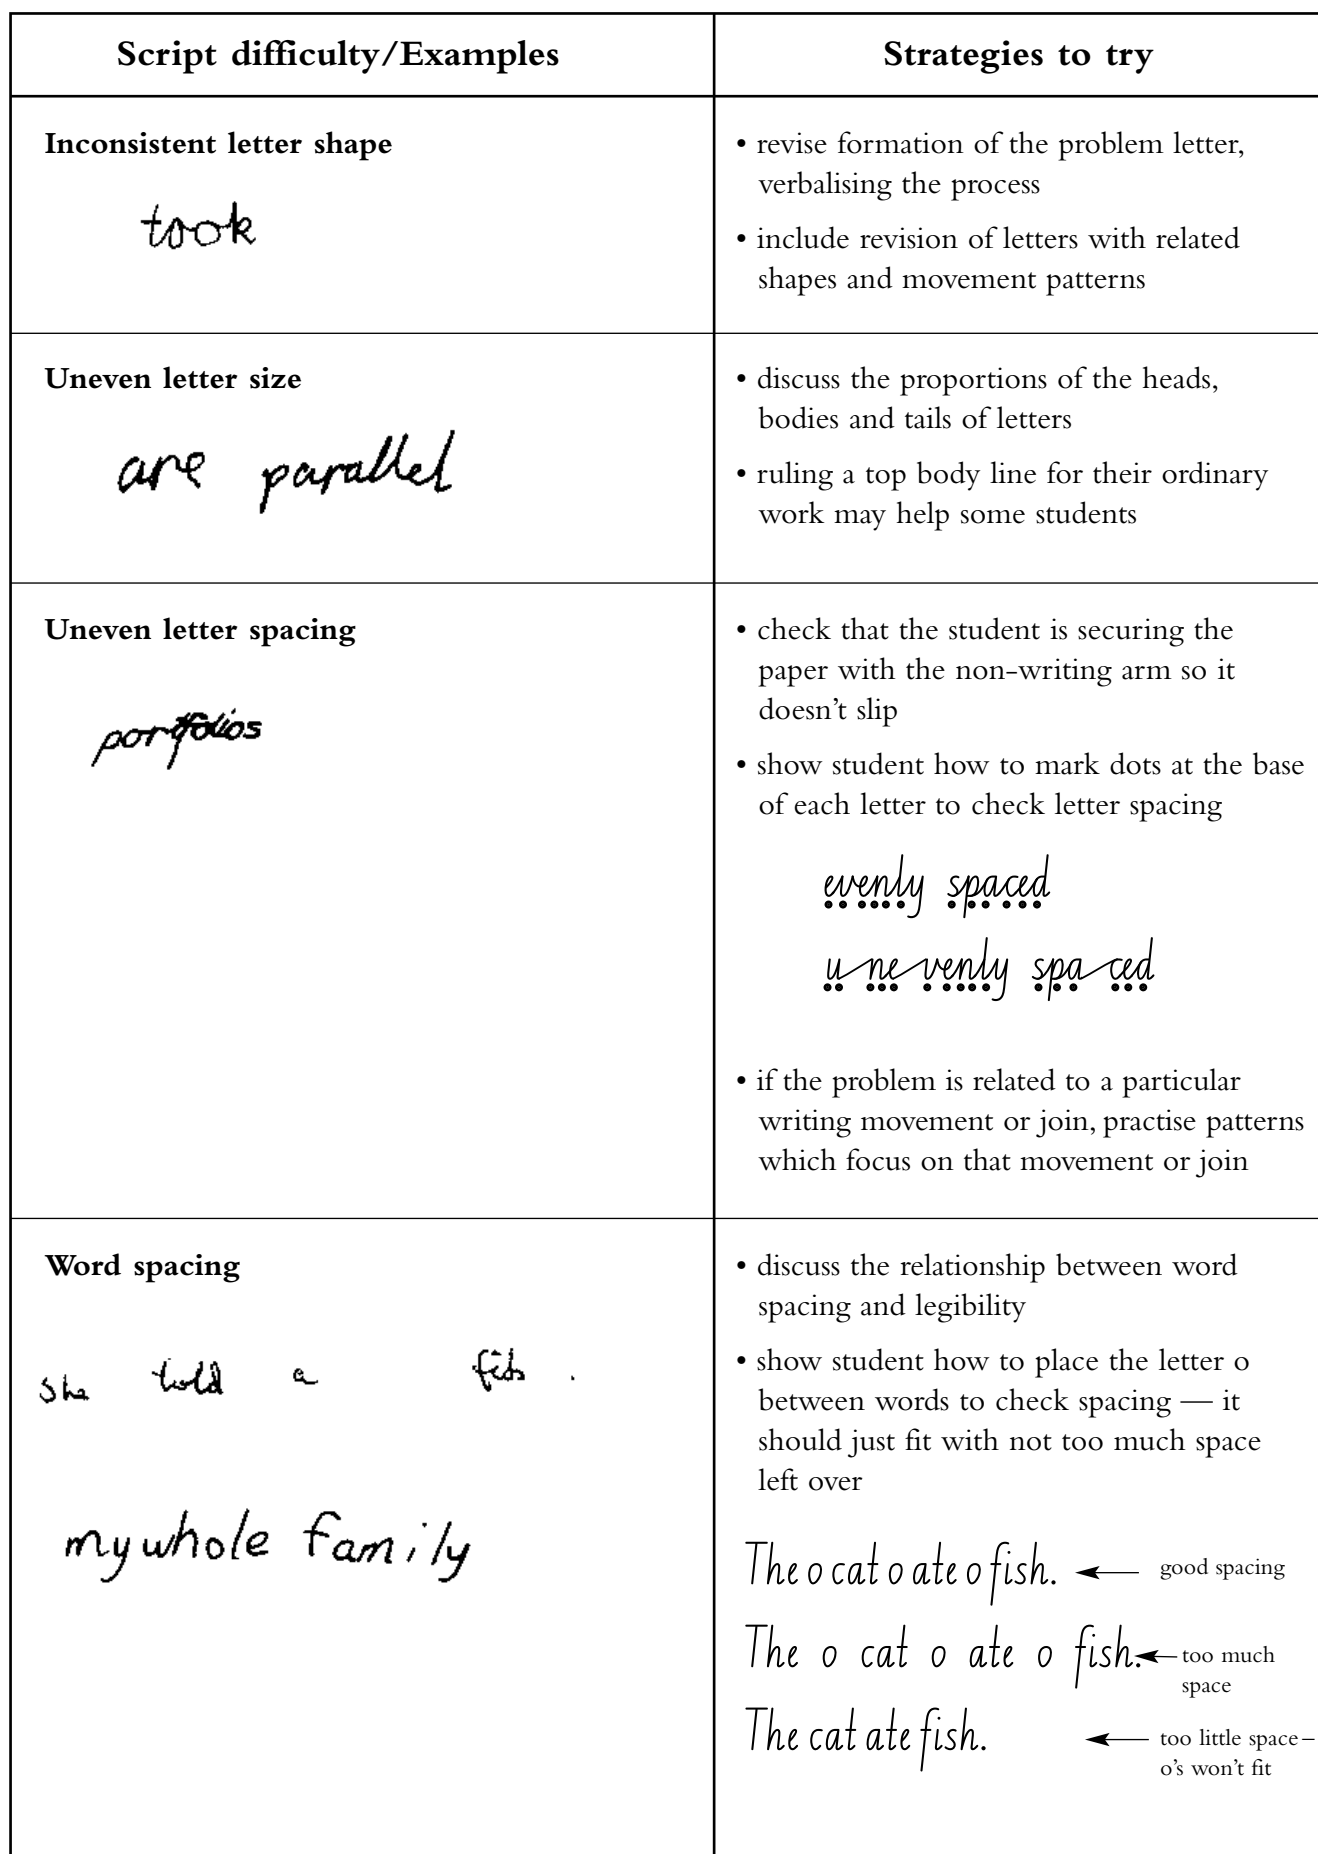 Script difficulty/Examples
Strategies to try
Inconsistent letter shape
took
• revise formation of the problem letter,
verbalising the process
• include revision of letters with related
shapes and movement patterns
Uneven letter size
are parallel
• discuss the proportions of the heads,
bodies and tails of letters
• ruling a top body line for their ordinary
work may help some students
Uneven letter spacing
portfolios
• check that the student is securing the
paper with the non-writing arm so it
doesn't slip
• show student how to mark dots at the base
of each letter to check letter spacing
evenly spaced
unevenly spaced
• if the problem is related to a particular
writing movement or join, practise patterns
which focus on that movement or join
Word spacing
She told a fib.
my whole family
• discuss the relationship between word
spacing and legibility
• show student how to place the letter o
between words to check spacing — it
should just fit with not too much space
left over
The o cat o ate o fish.
good spacing
The o cat o ate o fish.
too much
space
The cat ate fish.
too little space –
o's won't fit